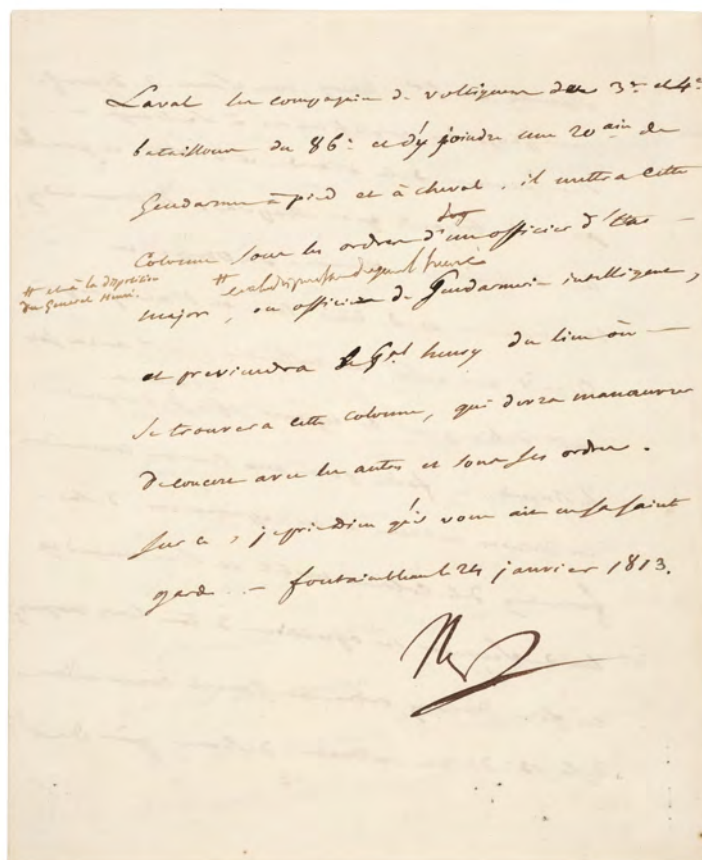 Laval les compagnies de voltigeurs des 3e. et 4e.
bataillons du 86e. et d'y joindre une 20aine de
Gendarmes à pied et à cheval, il mettra cette
Colonne sous les ordres d'un officier d'Etat
# et à la disposition # et à la disposition du général henri
du General Henri.
major, ou officier de Gendarmerie intelligent,
et previendra le Gal. henry du lieu où
se trouvera cette colonne, qui devra manœuvrer
de concert avec les autres et sous ses ordres.
sur ce, je prie Dieu qu'il vous ait en sa sainte
garde. — fontainebleau le 24 janvier 1813.